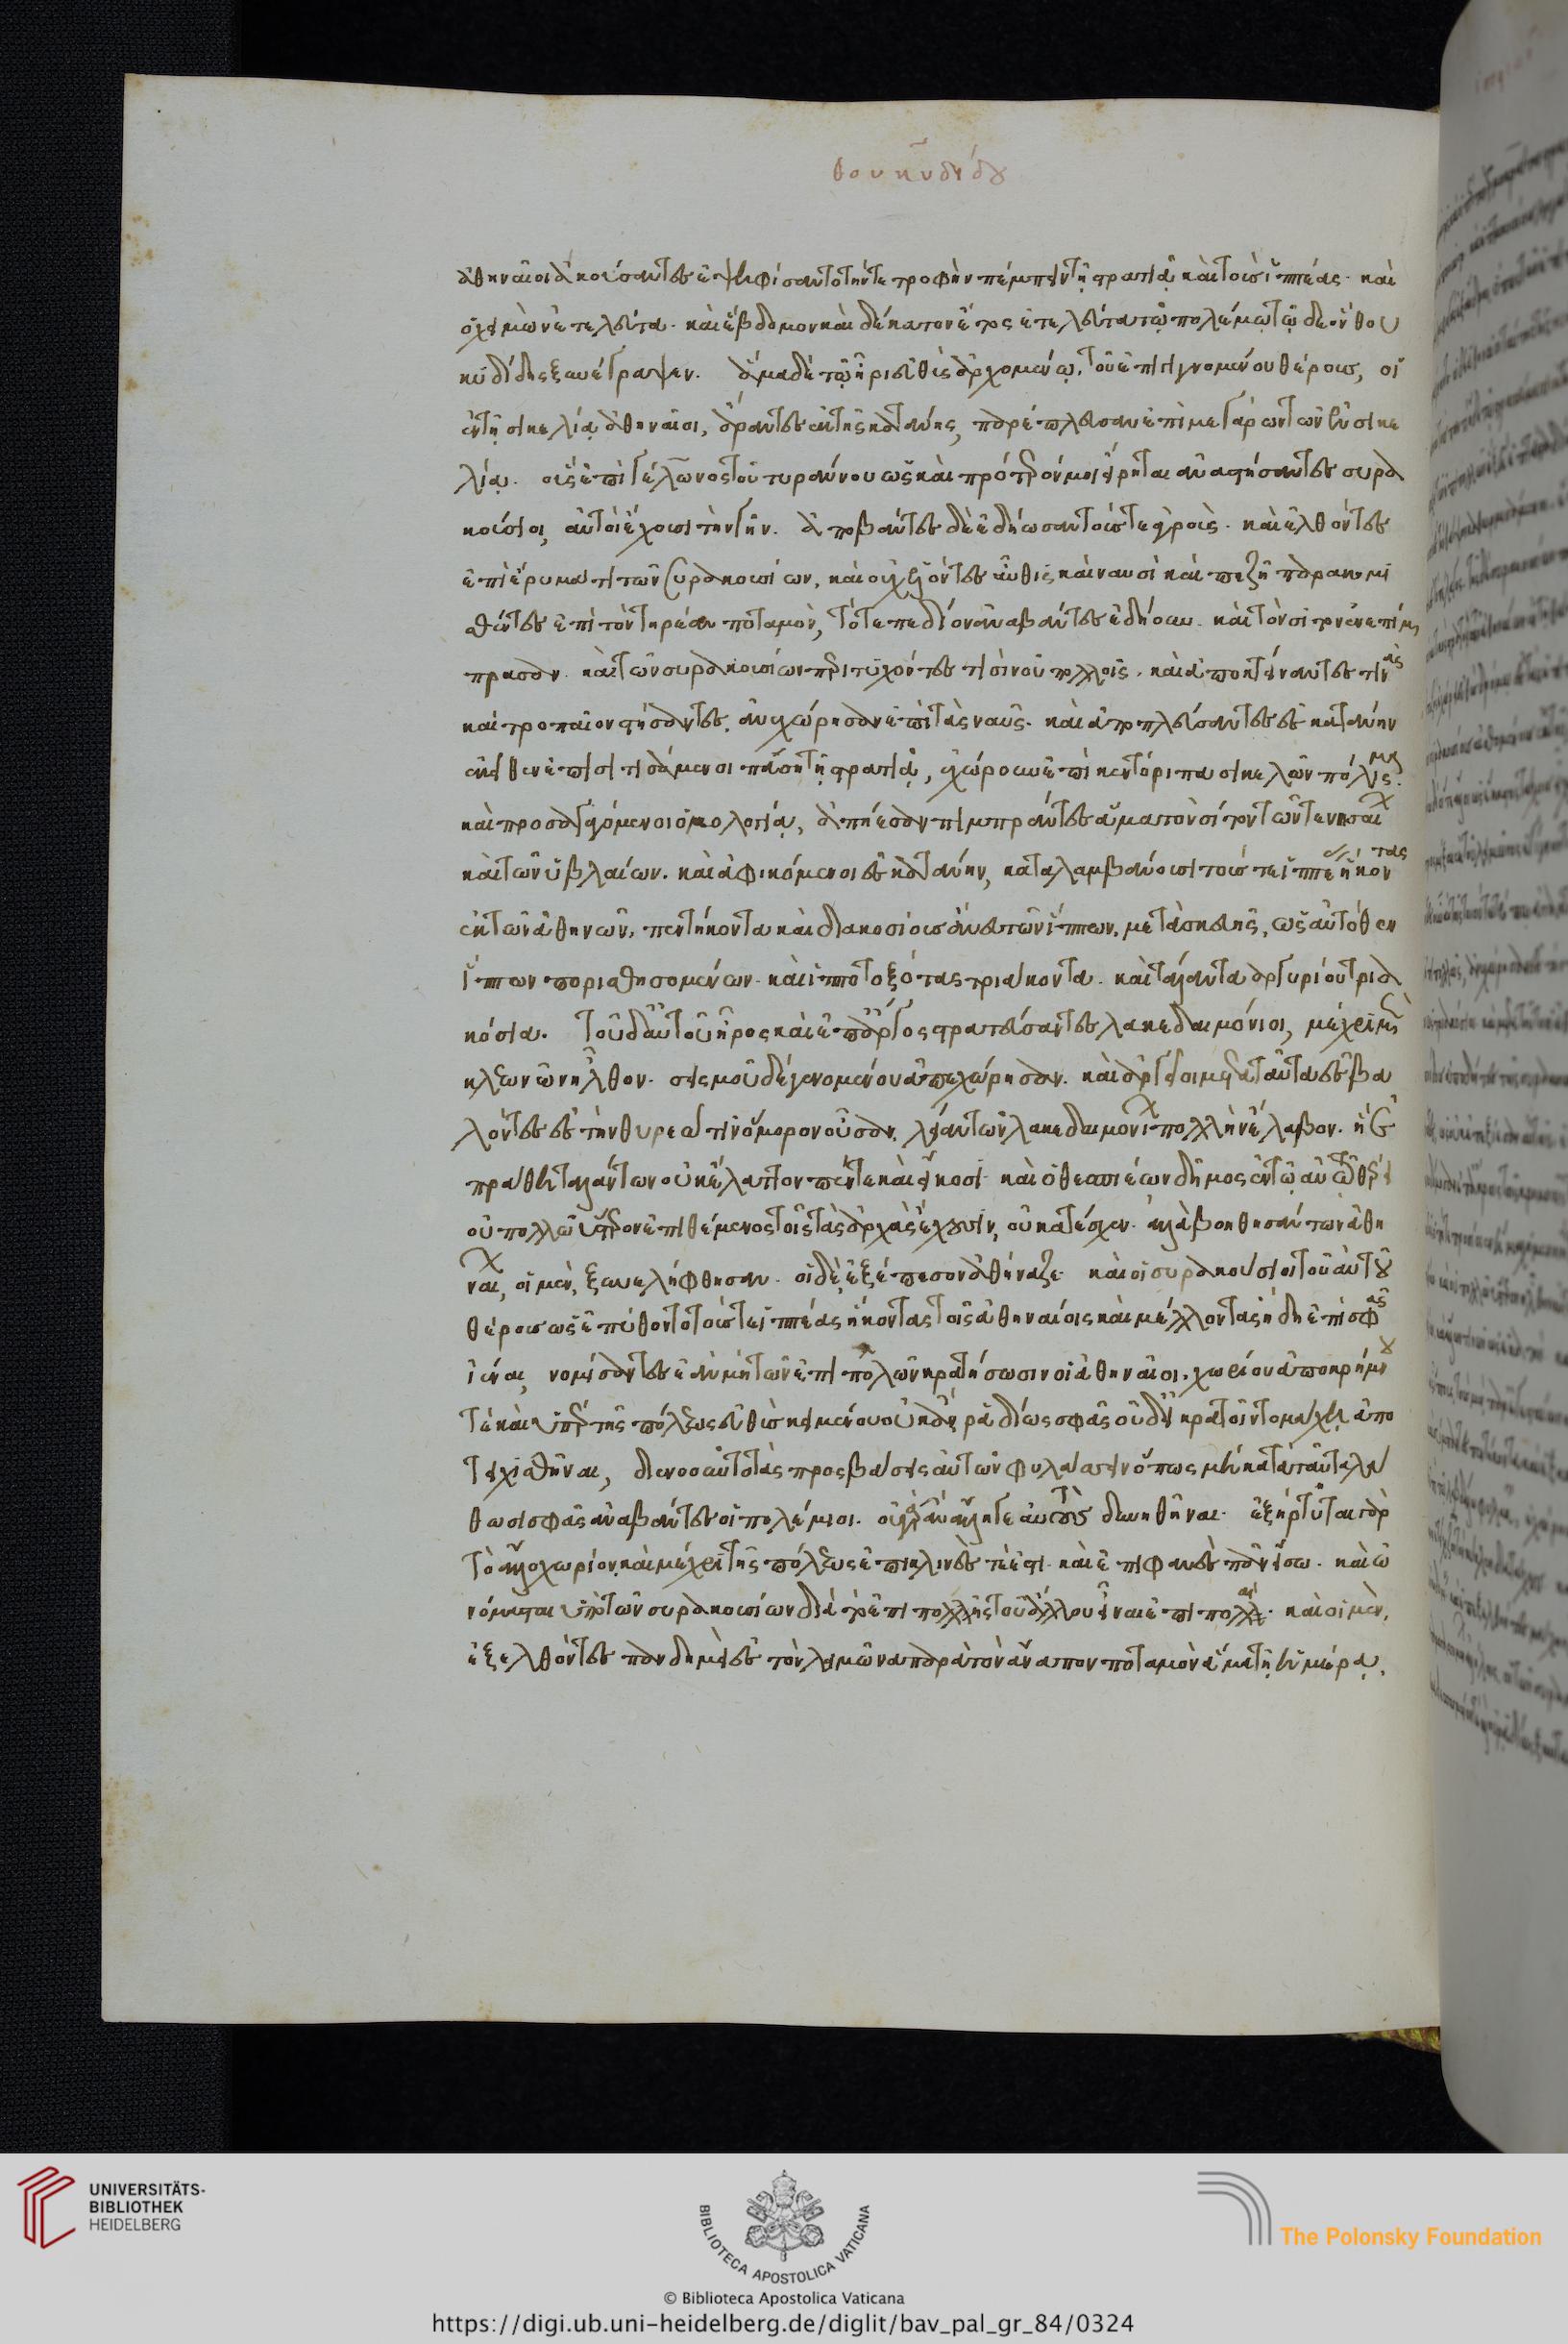 θουκυδίδου
ἀθηναῖοι ἀκούσαντες ἐψηφίσαντο τήν τε τροφὴν πέμπειν τῇ στρατιᾷ καὶ τοὺς ἱππέας. καὶ
ὁ χειμὼν ἐτελεύτα. καὶ ἕβδομον καὶ δέκατον ἔτος ἐτελεύτα τῷ πολέμῳ τῷδε ὃν θου
κυδίδης ξυνέγραψεν. ἅμα δὲ τῷ ἦρι εὐθὺς ἀρχομένῳ, τοῦ ἐπιγιγνομένου θέρους, οἱ
ἐν τῇ σικελίᾳ ἀθηναῖοι, ἄραντες ἐκ τῆς κατάνης, παρέπλευσαν ἐπὶ μεγάρων τῶν ἐν σικε
λίᾳ. οὓς ἐπὶ γέλωνος τοῦ τυράννου ὡς καὶ πρότερόν μοι εἴρηται ἀναστήσαντες συρα
κούσιοι, αὐτοὶ ἔχουσι τὴν γῆν. ἀποβάντες δὲ ἐδῄωσαν τούς τε ἀγροὺς. καὶ ἐλθόντες
ἐπὶ ἔρυμά τι τῶν συρακουσίων, καὶ οὐχ ἑλόντες αὖθις καὶ ναυσὶ καὶ πεζῇ παρακομι
σθέντες ἐπὶ τὸν τηρέαν ποταμὸν, τό τε πεδίον ἀναβάντες ἐδῄουν. καὶ τὸν σῖτον ἐνεπίμ
πρασαν. καὶ τῶν συρακουσίων περιτυχόντες τισὶν οὐ πολλοῖς. καὶ ἀποκτείναντές τινας
καὶ τροπαῖον στήσαντες, ἀνεχώρησαν ἐπὶ τὰς ναῦς. καὶ ἀποπλεύσαντες ἐς κατάνην
ἐκεῖθεν ἐπισιτισάμενοι πάσῃ τῇ στρατιᾷ, ἐχώρουν ἐπὶ κεντόριπα σικελῶν πόλισμα.
καὶ προσαγόμενοι ὁμολογίᾳ, ἀπῄεσαν πιμπράντες ἅμα τὸν σῖτον τῶν τε ινησσαί
καὶ τῶν ὑβλαίων. καὶ ἀφικόμενοι ἐς κατάνην, καταλαμβάνουσι τούς τε ἱππέας ἥκοντας
ἐκ τῶν ἀθηνῶν, πεντήκοντα καὶ διακοσίους ἄνευ τῶν ἵππων, μετὰ σκευῆς, ὡς αὐτόθεν
ἵππων πορισθησομένων. καὶ ἱπποτοξότας τριάκοντα. καὶ τάλαντα ἀργυρίου τρια
κόσια. τοῦ δ᾽ αὐτοῦ ἦρος καὶ ἐπ᾽ ἄργος στρατεύσαντες λακεδαιμόνιοι, μέχρι μὲν
κλεωνῶν ἦλθον. σεισμοῦ δὲ γενομένου ἀπεχώρησαν. καὶ ἀργεῖοι μετὰ ταῦτα ἐσβα
λόντες ἐς τὴν θυρεάτιν ὅμορον οὖσαν, λείαν τῶν λακεδαιμονί πολλὴν ἔλαβον. ἣ
πράθη ταλάντων οὐκ ἔλαττον πέντε καὶ εἴκοσι. καὶ ὁ θεσπιέων δῆμος ἐν τῷ αὐτῷ θέρει
οὐ πολλῷ ὕστερον ἐπιθέμενος τοῖς τὰς ἀρχὰς ἔχουσιν, οὐ κατέσχεν. ἀλλὰ βοηθησάντων ἀθη
ναί, οἱ μὲν, ξυνελήφθησαν. οἱ δὲ, ἐξέπεσον ἀθήναζε. καὶ οἱ συρακούσιοι τοῦ αὐτοῦ
θέρους ὡς ἐπύθοντο τούς τε ἱππέας ἥκοντας τοῖς ἀθηναίοις καὶ μέλλοντας ἤδη ἐπὶ σφᾶς
ἰέναι, νομίσαντες ἐὰν μὴ τῶν ἐπιπολῶν κρατήσωσιν οἱ ἀθηναῖοι, χωρίου ἀποκρήμνου
τε καὶ ὑπὲρ τῆς πόλεως εὐθὺς κειμένου οὐκ ἂν ῥᾳδίως σφᾶς οὐδ᾽ εἰ κρατοῖντο μάχῃ ἀπο
τειχισθῆναι, διενοοῦντο τὰς προσβάσεις αὐτῶν φυλάσσειν ὅπως μὴ κατὰ ταῦτα λά
θωσι σφᾶς ἀναβάντες οἱ πολέμιοι. οὐ γὰρ ἂν ἄλλῃ γε αὐτοὺς δυνηθῆναι. ἐξήρτηται γὰρ
τὸ ἄλλο χωρίον, καὶ μέχρι τῆς πόλεως ἐπικλινές τέ ἐστι. καὶ ἐπιφανὲς πᾶν εἴσω. καὶ ὠ
νόμασται ὑπὸ τῶν συρακουσίων διὰ τὸ ἐπιπολῆς τοῦ ἄλλου εἶναι ἐπιπολαί. καὶ οἱ μὲν,
ἐξελθόντες πανδημεὶ ἐς τὸν λειμῶνα παρὰ τὸν ἄναπον ποταμὸν ἅμα τῇ ἡμέρᾳ,
UNIVERSITÄTS-
BIBLIOTHEK
HEIDELBERG
BIBLIOTECA APOSTOLICA VATICANA
The Polonsky Foundation
© Biblioteca Apostolica Vaticana
https://digi.ub.uni-heidelberg.de/diglit/bav_pal_gr_84/0324